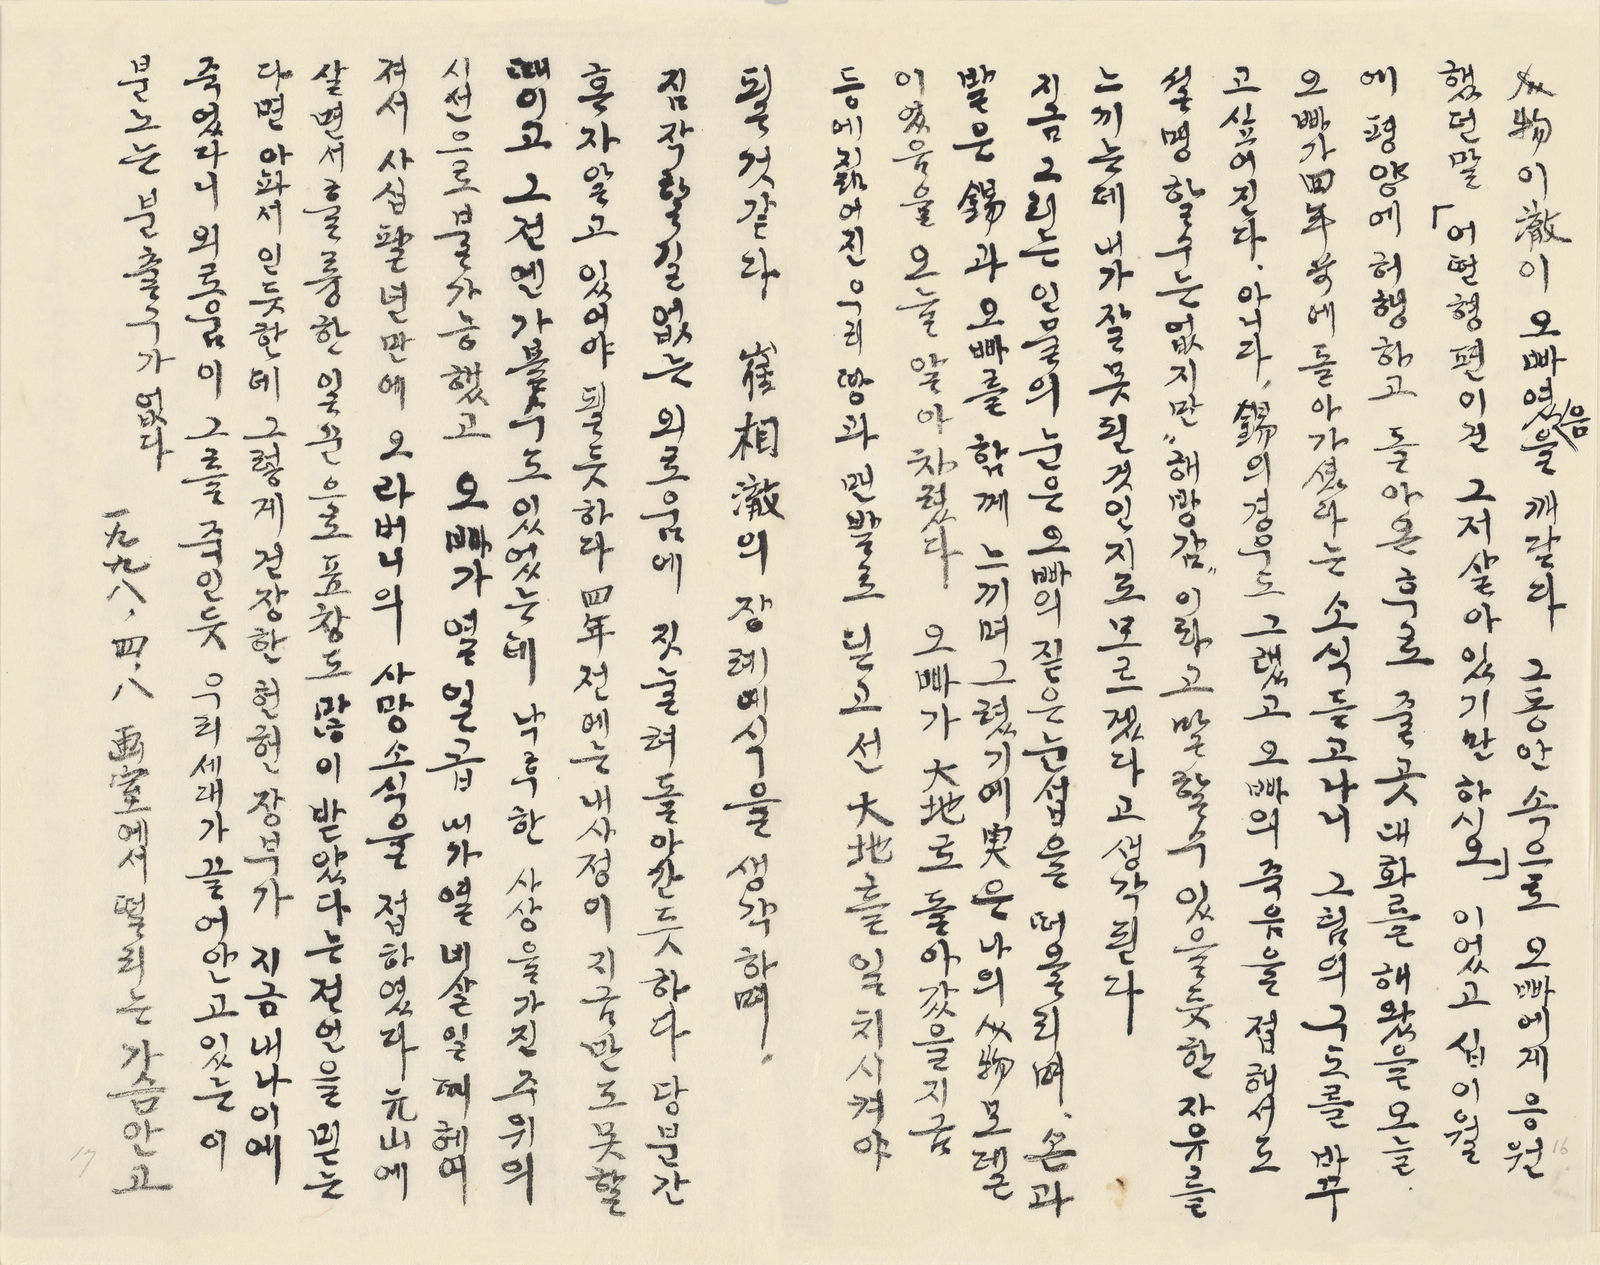 人物이 澈이 오빠였음을 깨닫다 그동안 속으로 오빠에게 응원
했던말 「어떤형편이건 그저살아있기만하시오」 이었고 십이월
에 평양에 허행하고 돌아온 후로 줄곳대화를 해왔을오늘.
오빠가 四年 前에돌아가셨다는 소식듣고나니 그림의구도를 바꾸
고싶어진다. 아니다, 錫의경우도 그랬고 오빠의 죽음을 접해서도
설명할수는없지만 “해방감”이라고 말할수 있을듯한 자유를
느끼는데 내가 잘못된것인지도모르겠다고 생각된다
지금 그리는 인물의 눈은오빠의 짙은눈섭을 떠올리며. 손과
발은 錫과 오빠를 함께 느끼며 그렸기에 男은 나의 人物모델
이었음을 오늘 알아차렸다 오빠가 大地로 돌아갔을지금
등에짊어진우리 땅과 맨발로 딛고선 大地를 일치시켜야
될것같다 崔相澈의 장례예식을 생각하며.
짐작할길없는 외로움에 짓눌려 돌아간듯하다 당분간
혼자알고 있어야 될듯하다 四年 전에는 내사정이 지금만도못할
때이고 그전엔가볼수도있었는데 낙후한 사상을가진 주위의
시선으로불가능했고 오빠가 열일곱 내가열네살일때헤여
져서 사십팔년만에 오라버니의 사망소식을 접하였다 元山에
살면서훌륭한일꾼으로 표창도 많이받았다는전언을 믿는
다면 아파서인듯한데 그렇게건장한 헌헌장부가 지금내나이에
죽었다니 외로움이 그를 죽인듯 우리세대가 끌어안고있는 이
분노는 분출구가 없다
一九九八. 四. 八 畵室에서 떨리는 가슴안고
16
17